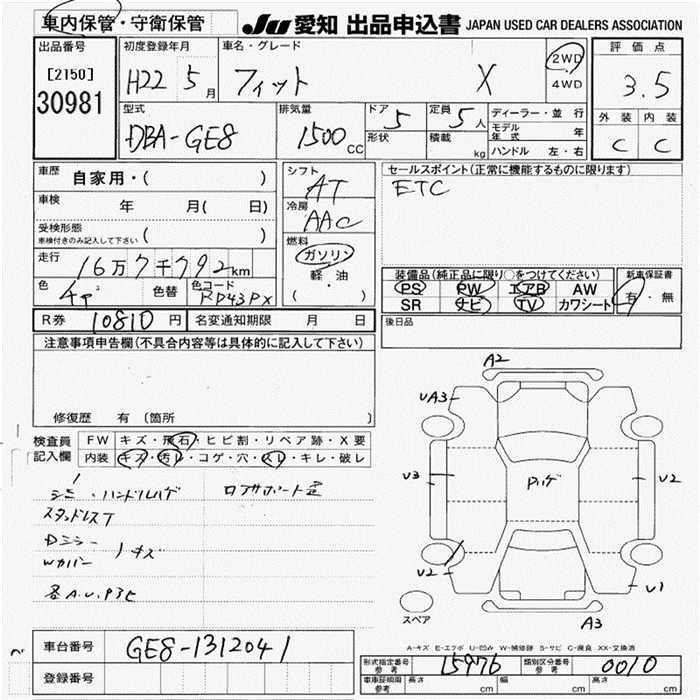 車内保管・守衛保管
JU 愛知 出品申込書 JAPAN USED CAR DEALERS ASSOCIATION
出品番号
[2150]
30981
初度登録年月
H22 5月
車名・グレード
フィット X
2WD
4WD
評価点
3.5
外装 内装
C C
型式
DBA-GE8
排気量
1500 CC
ドア 5
形状
定員 5人
積載 kg
ディーラー・並行
モデル年式 年
ハンドル 左・右
車歴 自家用・( )
車検 年 月( 日)
受検形態
車検付きのみ記入して下さい ( )
走行 16万7千792km
色 色替 色コード RP43PX
シフト
AT
冷房
AAC
燃料
ガソリン
軽・油
( )
セールスポイント(正常に機能するものに限ります)
ETC
装備品(純正品に限り○をつけてください)
PS PW エアB AW
SR ナビ TV カワシート
新車保証書
有・無
R券 10810円 名変通知期限 月 日
後日品
注意事項申告欄(不具合内容等は具体的に記入して下さい)
修復歴 有 (箇所 )
検査員記入欄
FW キズ・飛石・ヒビ割・リペア跡・X要
内装 キズ・汚レ・コゲ・穴・スレ・キレ・破レ
シミ・ハンドルハゲ
スタッドレスT
Dミラー
Wカバー 1キズ
各A.U.P3E
A2
UA3
U3
Pハゲ
U2
U2
U1
スペア
A3
A-キズ E-エクボ U-凹み W-補修跡 S-サビ C-腐食 XX-交換済
車台番号 GE8-1312041
登録番号
形式指定番号 参考 15976
類別区分番号 参考 0010
車庫証明用 参考 長さ cm 幅 cm 高さ cm